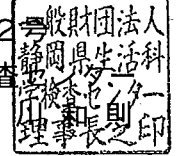 2号
一般財団法人
静岡県生活科
学検査センター
理事長之印
査
川 和 則